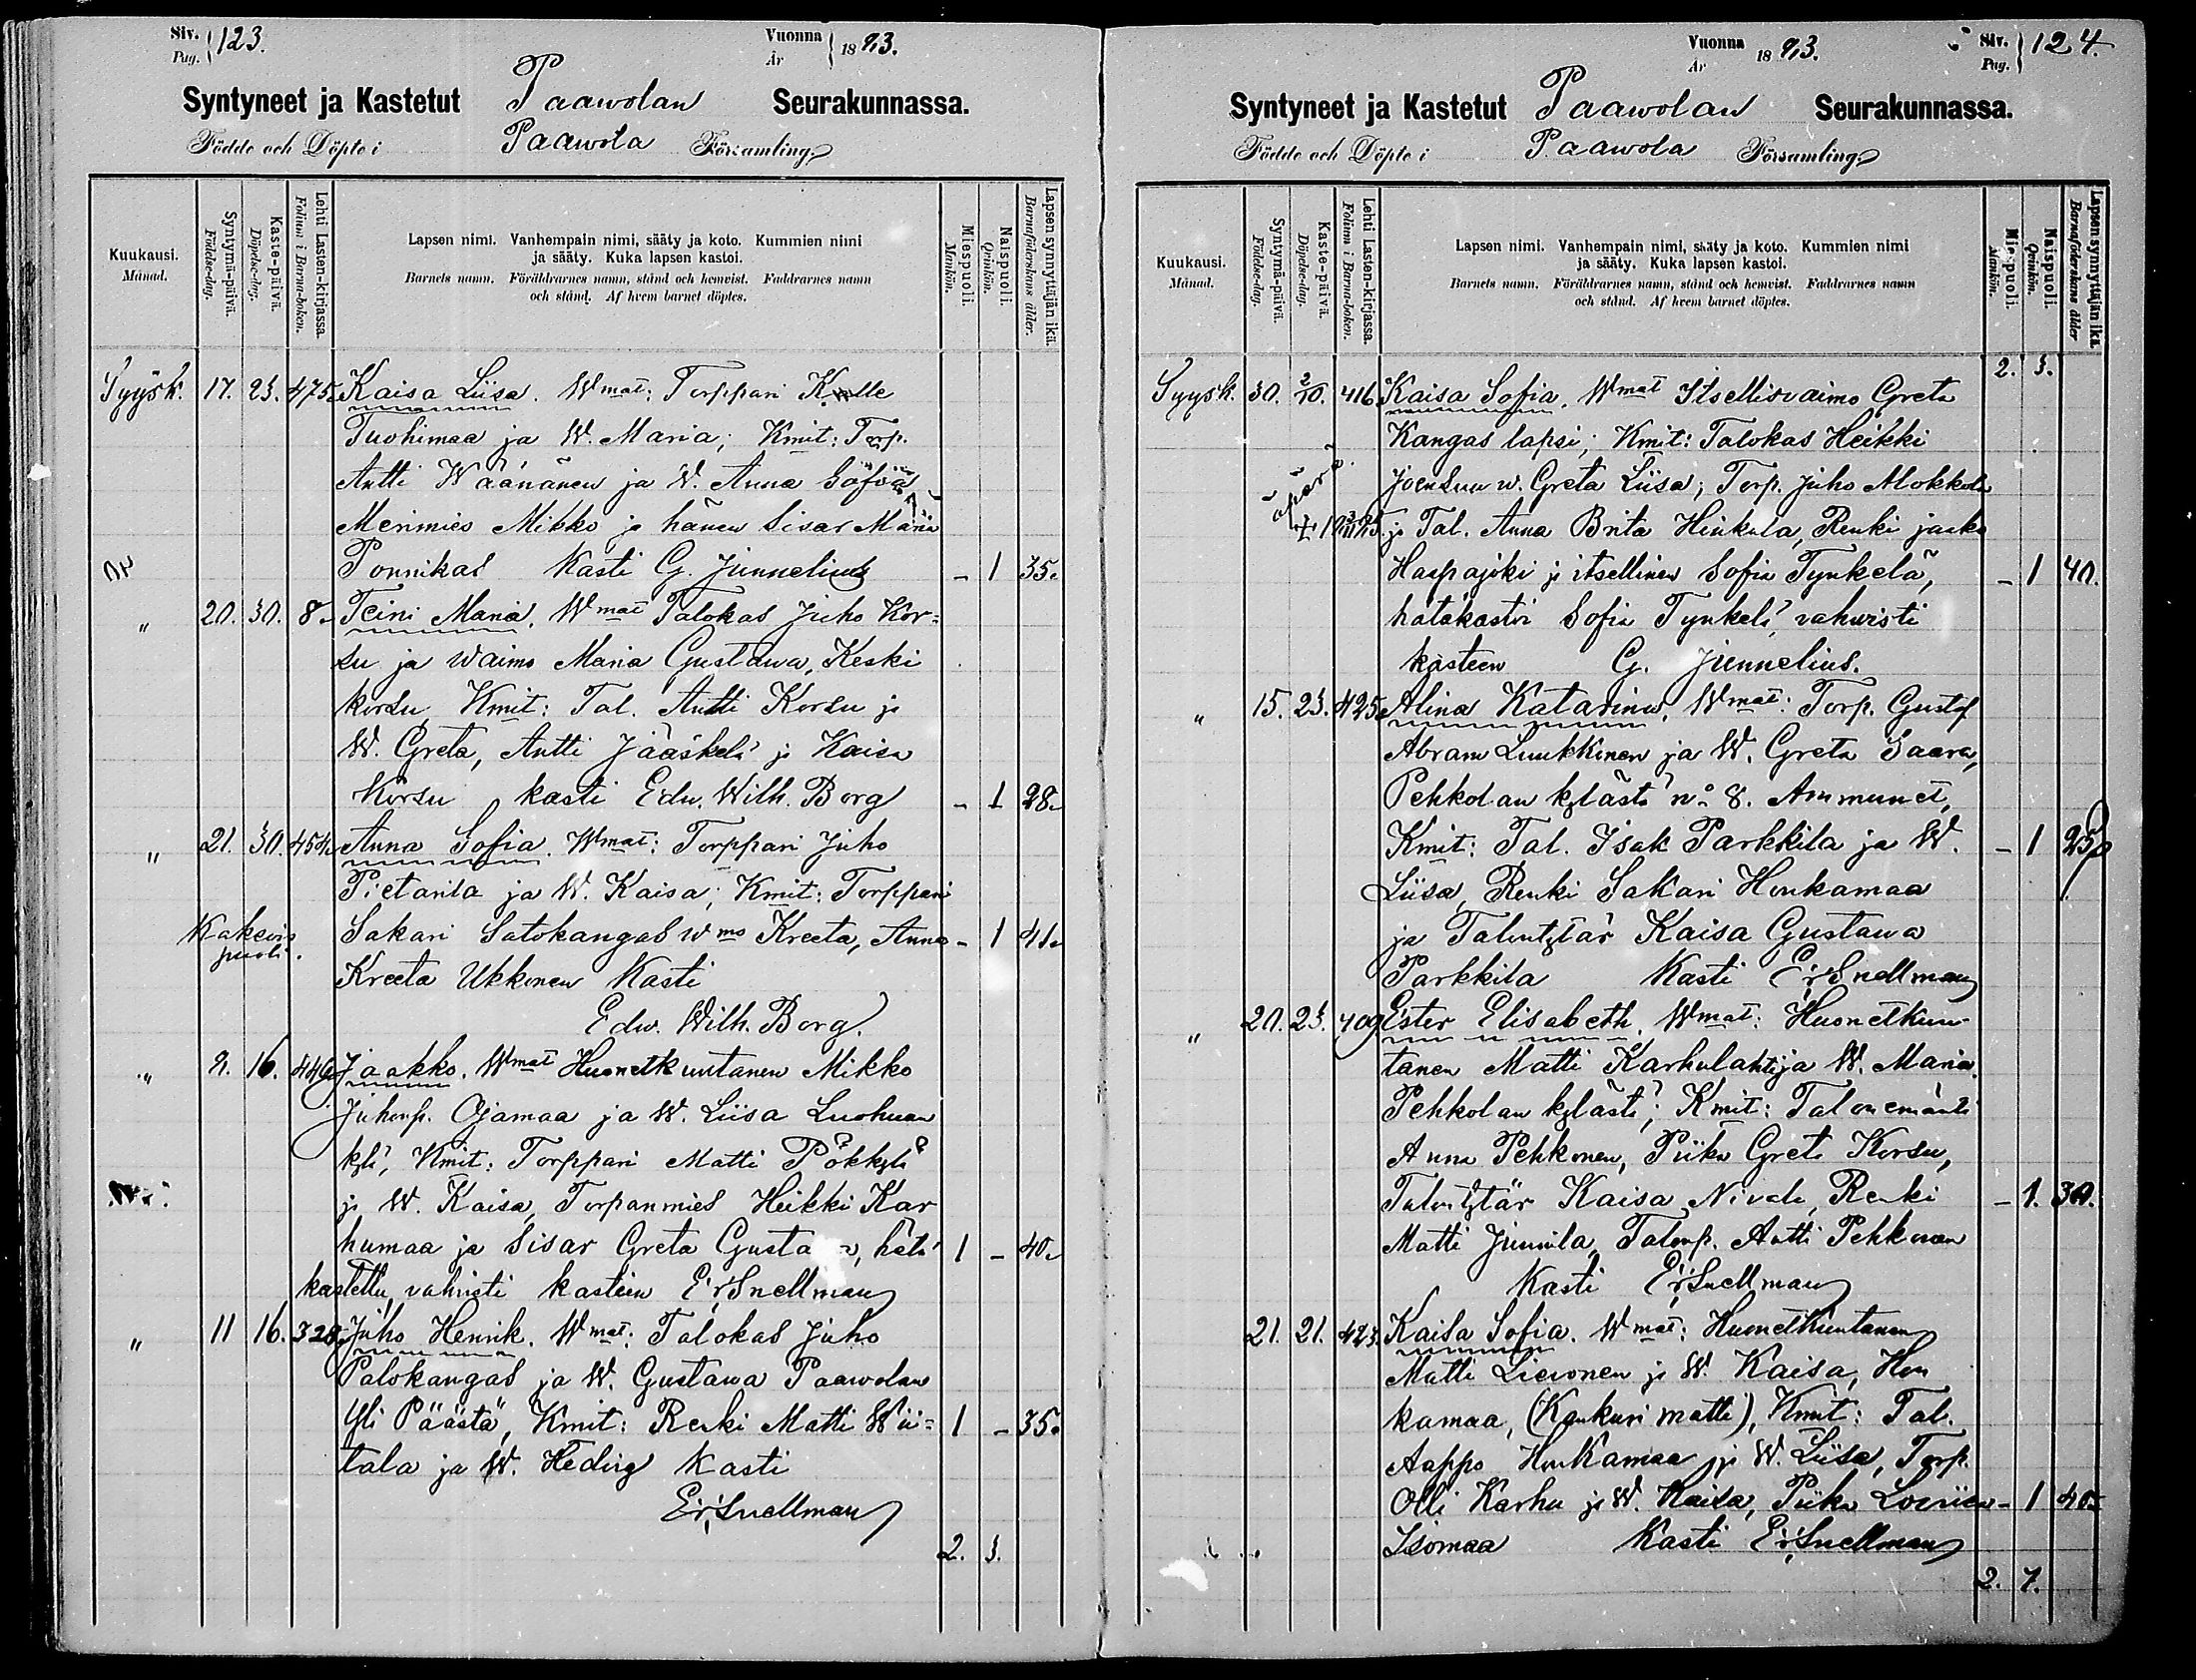 Siv. 123.
Pag.
Vuonna 1893.
År
Syntyneet ja Kastetut Paawolan Seurakunnassa.
Födde och Döpte i Paawola Församling.
Kuukausi.
Månad.
Syntymä-päivä.
Födelse-dag.
Kaste-päivä.
Döpelse-dag.
Lehti Lasten-kirjassa.
Folium i Barna-boken.
Lapsen nimi. Vanhempain nimi, sääty ja koto. Kummien nimi
ja sääty. Kuka lapsen kastoi.
Barnets namn. Föräldrarnes namn, stånd och hemvist. Faddrarnes namn
och stånd. Af hvem barnet döptes.
Miespuoli.
Mankön.
Naispuoli.
Qvinkön.
Lapsen synnyttäjän ikä.
Barnaföderskans ålder.
Syysk. 17. 23. 475. Kaisa Liisa. Wmat: Torppari Kalle
Tuohimaa ja W. Maria; Kmit: Torp.
Antti Wäänänen ja W. Anna Sofia
Merimies Mikko ja hänen sisar Maria
Ponnikas Kasti G. Junnelius - 1 35.
" 20. 30. 8. Teini Maria. Wmat Talokas Juho Kor=
su ja waimo Maria Gustawa, Keski
korsu, Kmit: Tal. Antti Korsu ja
W. Greta, Antti Jääskelä ja Kaisa
Korsu kasti Edw. Wilh. Borg - 1 28.
" 21. 30. 454. Anna Sofia. Wmat: Torppari Juho
Pietarila ja W. Kaisa; Kmit: Torppari
Sakari Satokangas wmo Kreeta, Anna - 1 41.
Kreeta Ukkonen Kasti
Edw. Wilh. Borg.
" 9. 16. 446 Jaakko. Wmat Huonetkuntanen Mikko
Juhonp. Ojamaa ja W. Liisa Luohuan
kylä, Kmit: Torppari Matti Pökkylä
ja W. Kaisa, Torpanmies Heikki Kar
humaa ja sisar Greta Gusta, hätä 1 - 40.
kastettu, vahvisti kasteen Er. Snellman
" 11 16. 328. Juho Henrik. Wmat: Talokas Juho
Palokangas ja W. Gustawa Paawolan
Yli Päästä, Kmit: Renki Matti Wii= 1 - 35.
tala ja W. Hedvig Kasti
Er. Snellman
2. 3.
Vuonna 1893.
År
Siv. 124.
Pag.
Syntyneet ja Kastetut Paawolan Seurakunnassa.
Födde och Döpte i Paawola Församling.
Kuukausi.
Månad.
Syntymä-päivä.
Födelse-dag.
Kaste-päivä.
Döpelse-dag.
Lehti Lasten-kirjassa.
Folium i Barna-boken.
Lapsen nimi. Vanhempain nimi, sääty ja koto. Kummien nimi
ja sääty. Kuka lapsen kastoi.
Barnets namn. Föräldrarnes namn, stånd och hemvist. Faddrarnes namn
och stånd. Af hvem barnet döptes.
Miespuoli.
Mankön.
Naispuoli.
Qvinkön.
Lapsen synnyttäjän ikä.
Barnaföderskans ålder
2. 3.
Syysk. 30. 2/10. 416. Kaisa Sofia. Wmat Itsellisvaimo Greta
Kangas lapsi; Kmit: Talokas Heikki
Joensuu w. Greta Liisa; Torp. Juho Mokkola
ja Tal. Anna Brita Hinkula, Renki Jaako
Haapajoki ja itsellinen Sofia Tynkelä, - 1 40.
hätäkastoi Sofia Tynkelä, vahwisti
kasteen G. Junnelius.
" 15. 23. 425. Alina Katarina. Wmat: Torp. Gustaf
Abram Luukkonen ja W. Greta Saara,
Pehkolan kylästä no 8.
Kmit: Tal. Isak Parkkila ja W. - 1 25
Liisa, Renki Sakari Honkamaa
ja Talontytär Kaisa Gustawa
Parkkila Kasti Er. Snellman
" 20. 23. 409 Ester Elisabeth. Wmat: Huonetkun-
tanen Matti Karhulahti ja W. Maria
Pehkolan kylästä; Kmit: Talonemäntä
Anna Pehkonen, Piika Greta Korsu,
Talontytär Kaisa Nivala, Renki - 1. 30.
Matti Junnila, Talonp. Antti Pehkonen
Kasti Er. Snellman
21. 21. 423. Kaisa Sofia. Wmat: Huonetkuntanen
Matti Lieronen ja W. Kaisa, Hon
kamaa, (Kankuri matti), Kmit: Tal.
Aappo Honkamaa ja W. Liisa, Torp.
Olli Karhu ja W. Kaisa, Piika Loviisa - 1 40.
Isomaa Kasti Er. Snellman
2. 7.